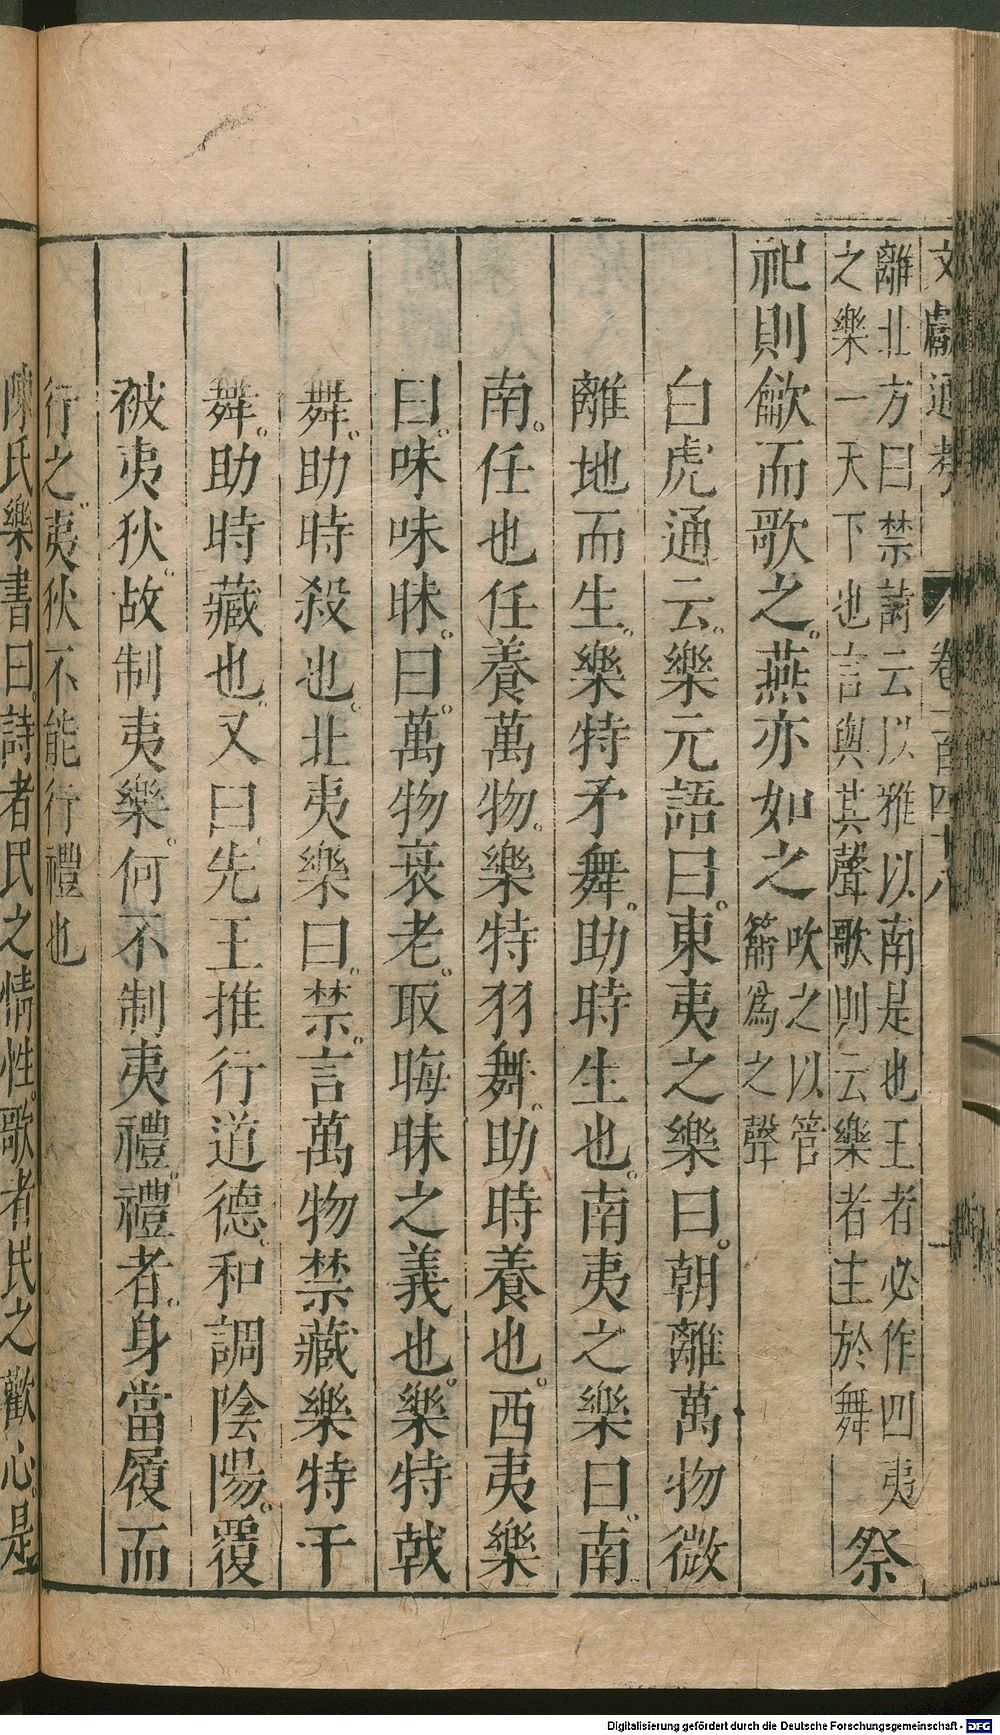 文獻通考 卷一百四十八 一
離北方曰禁詩云以雅以南是也王者必作四夷
之樂一天下也言與其聲歌則云樂者主於舞 祭
祀則龡而歌之。燕亦如之 吹之以管籥爲之聲
白虎通云。樂元語曰。東夷之樂曰。朝離萬物微
離地而生。樂特矛舞。助時生也。南夷之樂曰。南
南。任也任養萬物。樂特羽舞。助時養也。西夷樂
曰。味味昧。曰萬物衰老。取晦昧之義也。樂特戟
舞。助時殺也。北夷樂曰。禁。言萬物禁藏樂特干
舞。助時藏也。又曰。先王推行道德。和調陰陽。覆
被夷狄。故制夷樂。何不制夷禮。禮者。身當履而
行之。夷狄不能行禮也
陳氏樂書曰。詩者民之情性。歌者民之歡心。是
Digitalisierung gefördert durch die Deutsche Forschungsgemeinschaft - DFG